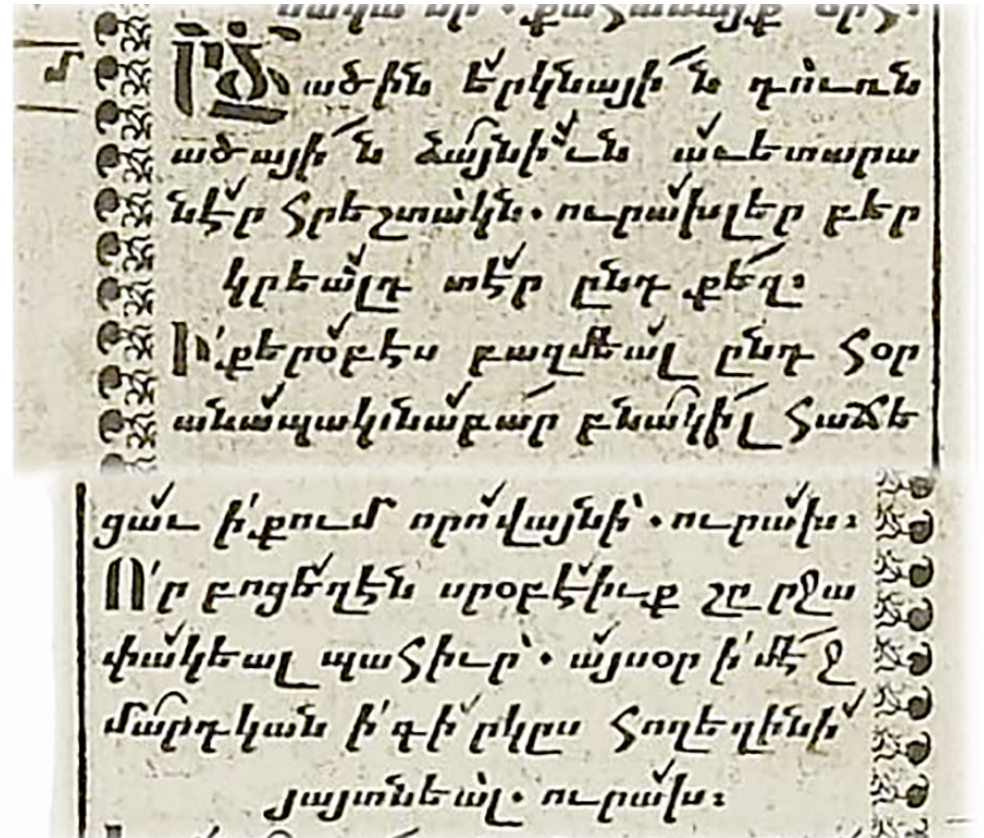 ածին երկնային դուռն
ածային ձայնիւն աւետարա
նէր հրեշտակն. ուրախլեր բեր
կրեալդ տէր ընդ քեզ։
Ի քերօբէս բազմեալ ընդ հօր
անապականաբար բնակիլ հաճե
ցաւ ի քում որովայնի՝. ուրախ։
Ո՛ր բոցեղէն սրօբէիւք շը րջա
փակեալ պահիւր՝. այսօր ի մէջ
մարդկան ի գի րկըս հողեղինի
յայտնեալ. ուրախ։